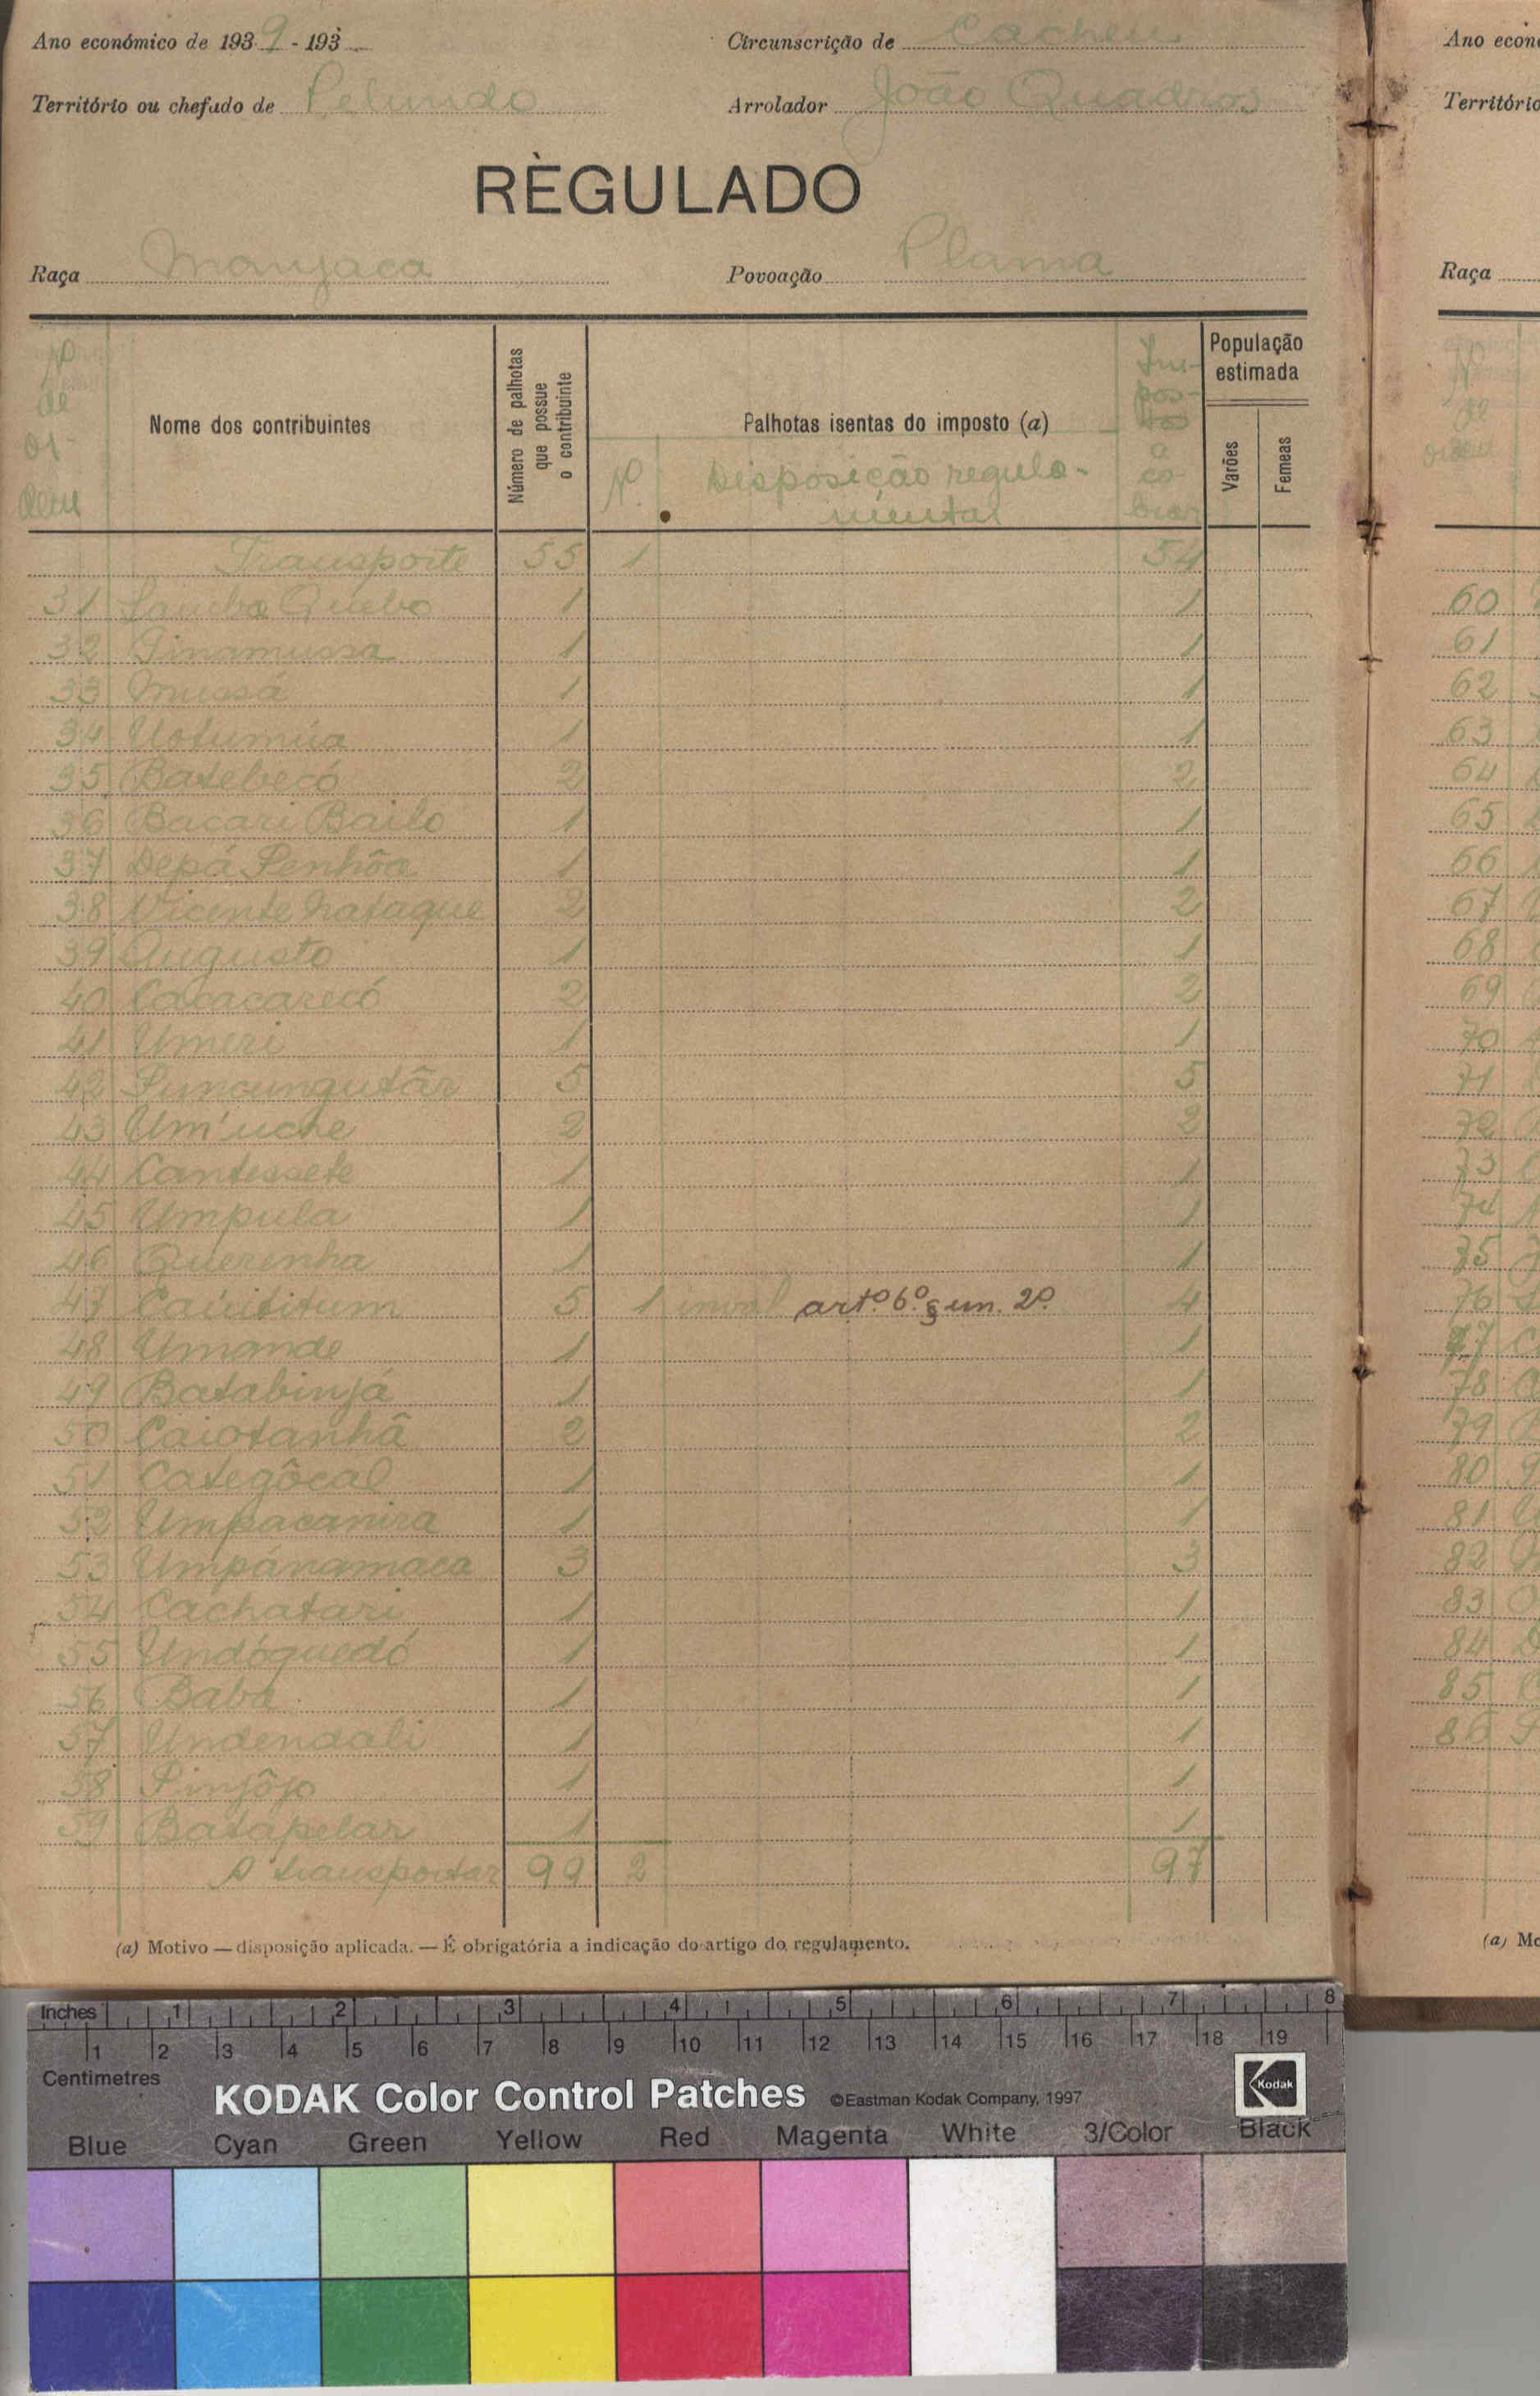 Ano económico de 1939 - 193
Circunscrição de Cacheu
Território ou chefado de Pelundo
Arrolador João Quadros
RÈGULADO
Raça Manjaca
Povoação Plama
Nº de ordem
Nome dos contribuintes
Número de palhotas que possue o contribuinte
Palhotas isentas do imposto (a)
Nº Disposição regulamentar
Impostos a cobrar
População estimada
Varões
Femeas
Transporte 55 1 54
31 Quebo 1 1
32 Pinamussa 1 1
33 Mussá 1 1
34 Uotumúa 1 1
35 Batebecó 2 2
36 Bacari Bailo 1 1
37 Depá Penhôa 1 1
38 Vicente Nataque 2 2
39 Augusto 1 1
40 Cacacarecó 2 2
41 Umeri 1 1
42 5 5
43 Um'uche 2 2
44 Cantessete 1 1
45 Umpula 1 1
46 Querenha 1 1
47 5 1 artº. 6º § un. 2º. 4
48 Umande 1 1
49 Batabinjá 1 1
50 Caiotanhâ 2 2
51 Categôcal 1 1
52 Umpacanira 1 1
53 Umpánamaca 3 3
54 Cachatari 1 1
55 Undóguedó 1 1
56 Baba 1 1
57 Undendali 1 1
58 Pinjôjo 1 1
59 Batapelar 1 1
A transportar 99 2 97
(a) Motivo — disposição aplicada. — É obrigatória a indicação do artigo do regulamento.
Ano econ
Território
Raça
60
61
62
63
64
65
66
67
68
69
70
71
72
73
74
75
76
77
78
79
80
81
82
83
84
85
86
(a) Mo
Inches 1 2 3 4 5 6 7 8
1 2 3 4 5 6 7 8 9 10 11 12 13 14 15 16 17 18 19
Centimetres
KODAK Color Control Patches ©Eastman Kodak Company, 1997 Kodak
Blue Cyan Green Yellow Red Magenta White 3/Color Black